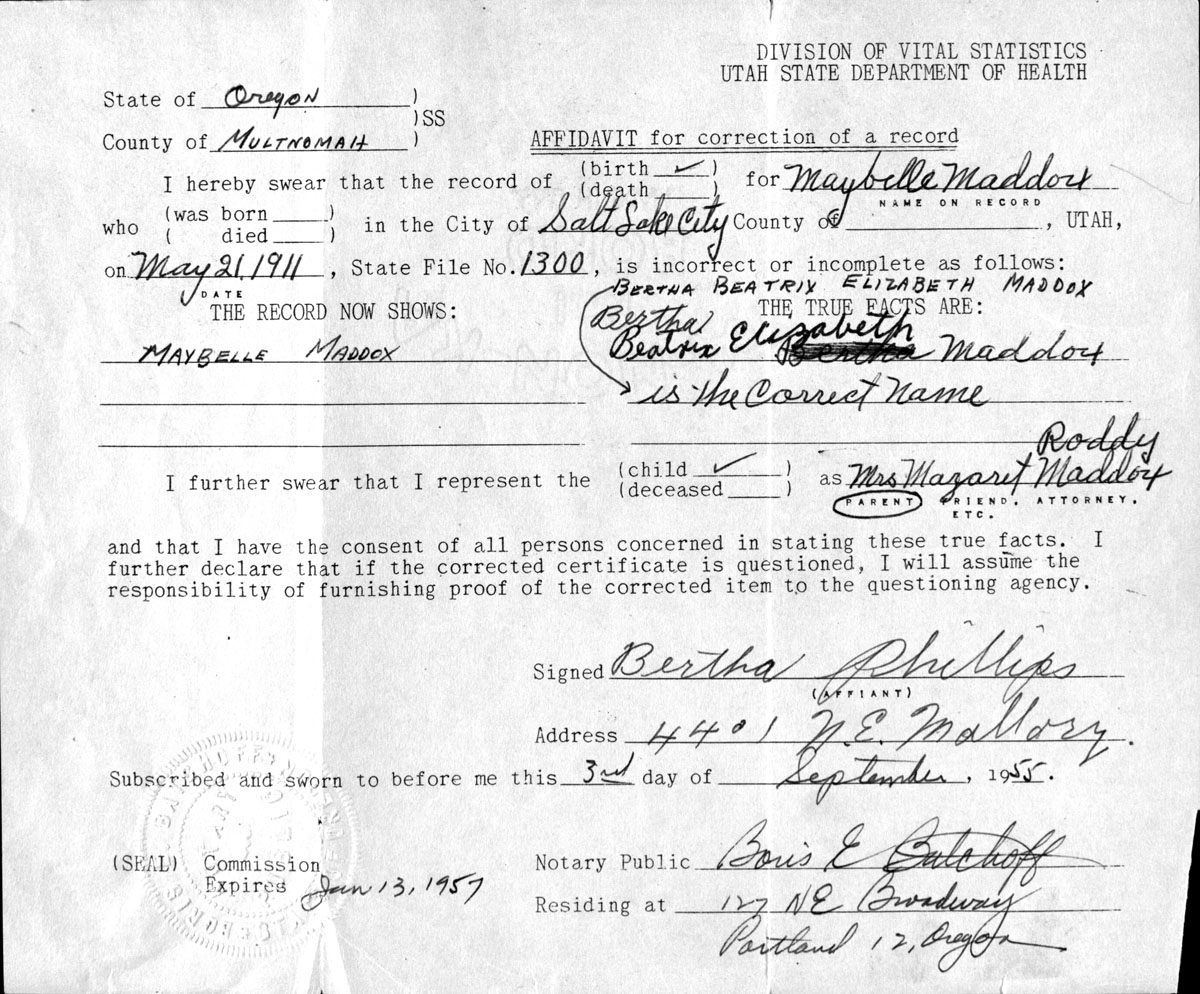 DIVISION OF VITAL STATISTICS
UTAH STATE DEPARTMENT OF HEALTH
State of Oregon )
)SS
County of MULTNOMAH )
AFFIDAVIT for correction of a record
I hereby swear that the record of (birth ✓) for Maybelle Maddox
(death ____)
NAME ON RECORD
who (was born ____) in the City of Salt Lake City County of ____, UTAH,
( died ____)
on May 21, 1911, State File No. 1300, is incorrect or incomplete as follows:
DATE
BERTHA BEATRIX ELIZABETH MADDOX
THE RECORD NOW SHOWS: THE TRUE FACTS ARE:
Bertha
MAYBELLE MADDOX Beatrix Elizabeth Bertha Maddox
is the Correct Name
Roddy
I further swear that I represent the (child ✓) as Mrs Mazaret Maddox
(deceased ____)
PARENT FRIEND, ATTORNEY,
ETC.
and that I have the consent of all persons concerned in stating these true facts. I
further declare that if the corrected certificate is questioned, I will assume the
responsibility of furnishing proof of the corrected item to the questioning agency.
Signed Bertha Phillips
(AFFIANT)
Address 4401 N.E. Mallory.
Subscribed and sworn to before me this 3rd day of September, 1955.
(SEAL) Commission Notary Public Boris E
Expires Jan 13, 1957
Residing at 127 NE Broadway
Portland 12, Oregon